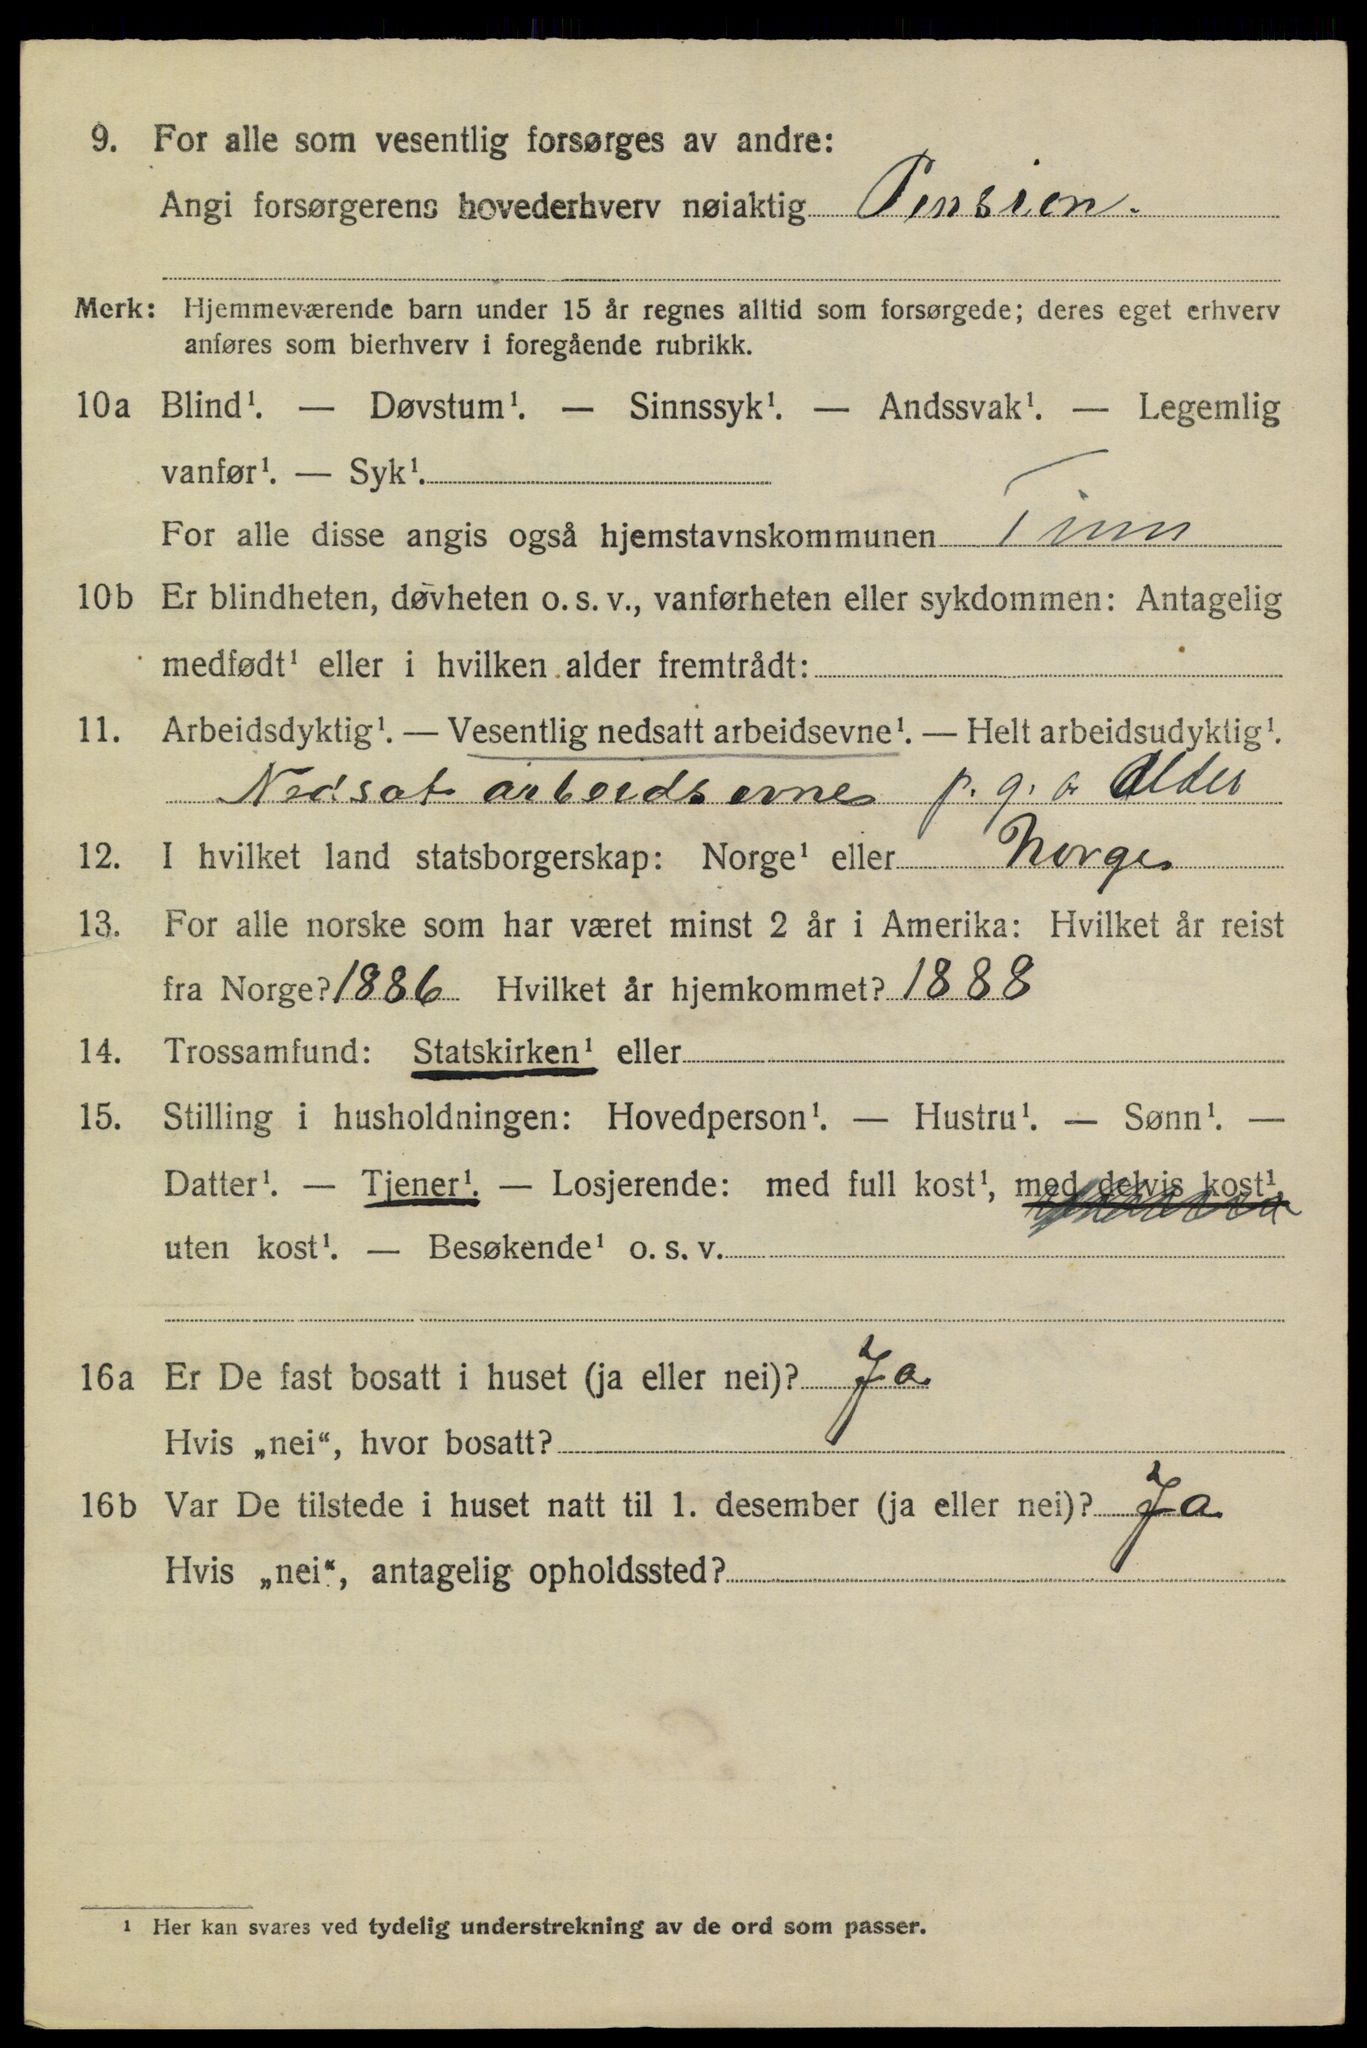 9. For alle som vesentlig forsørges av andre:
Angi forsørgerens hovederhverv nøiaktig Pension.
Merk: Hjemmeværende barn under 15 år regnes alltid som forsørgede; deres eget erhverv
anføres som bierhverv i foregående rubrikk.
10a Blind¹. — Døvstum¹. — Sinnssyk¹. — Andssvak¹. — Legemlig
vanfør¹. — Syk¹.
For alle disse angis også hjemstavnskommunen Tinn
10b Er blindheten, døvheten o. s. v., vanførheten eller sykdommen: Antagelig
medfødt¹ eller i hvilken alder fremtrådt:
11. Arbeidsdyktig¹. — Vesentlig nedsatt arbeidsevne¹. — Helt arbeidsudyktig¹.
Nedsat arbeidsevne p. g. a Alder
12. I hvilket land statsborgerskap: Norge¹ eller Norge
13. For alle norske som har været minst 2 år i Amerika: Hvilket år reist
fra Norge? 1886 Hvilket år hjemkommet? 1888
14. Trossamfund: Statskirken¹ eller
15. Stilling i husholdningen: Hovedperson¹. — Hustru¹. — Sønn¹. —
Datter¹. — Tjener¹. — Losjerende: med full kost¹, med delvis kost¹,
uten kost¹. — Besøkende¹ o. s. v.
16a Er De fast bosatt i huset (ja eller nei)? Ja
Hvis „nei“, hvor bosatt?
16b Var De tilstede i huset natt til 1. desember (ja eller nei)? Ja
Hvis „nei“, antagelig opholdssted?
¹ Her kan svares ved tydelig understrekning av de ord som passer.